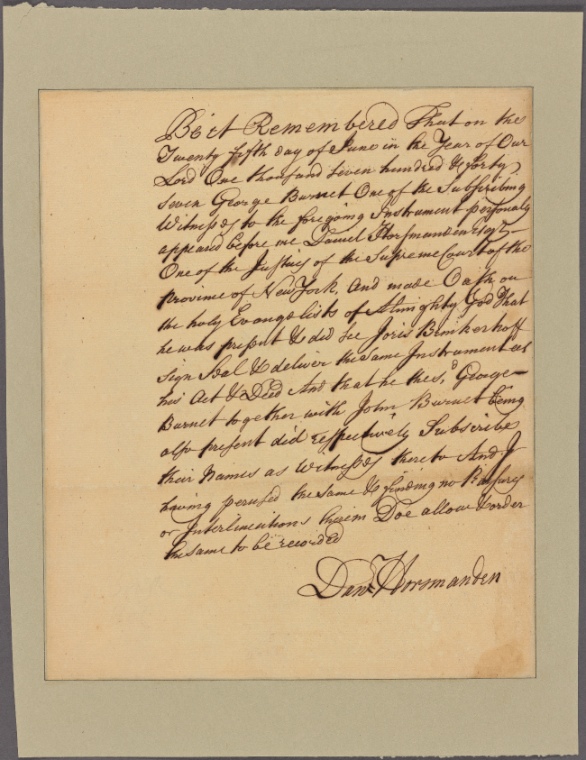 Be it Remembered That on the
Twenty fifth day of June in the Year of Our
Lord One thousand seven hundred & forty
seven George Burnet One of the Subscribing
Witnesses to the foregoing Instrument personaly
appeared before me Daniel Horsmanden Esqr.
One of the Justices of the Supreme Court of the
province of New York and made Oath on
the holy Evangelists of Almighty God That
he was present & did see Joris Brinkerhoff
Sign Seal & deliver the same Instrument as
his Act & Deed And that he the sd. George
Burnet together with John Burnet being
also present did respectively Subscribe
their Names as Witnesses thereto And I
having perused the same & finding no Rasures
or Interlineations therein Doe allow & order
the same to be recorded
Danl. Horsmanden